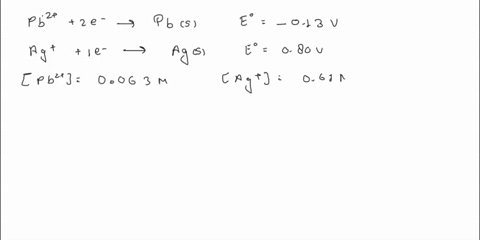 Pb²⁺ + 2e⁻ → Pb(s) E° = -0.13 V
Ag⁺ + 1e⁻ → Ag(s) E° = 0.80 V
[Pb²⁺] = 0.063 M [Ag⁺] =